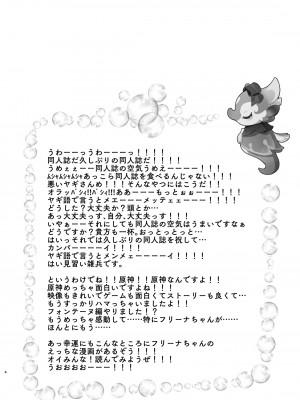 うわーーっうわーーーっ！！！！
同人誌だ久しぶりの同人誌だ！！！！
うめぇぇーー同人誌の空気うめえーーー！！！！
ﾑｼｬﾑｼｬﾑｼｬﾑｼｬあっこら同人誌を食べるんじゃない！！
悪いヤギさんめ！！そんなやつにはこうだ！！
オラッﾊﾞｼｨ!!ﾊﾞｼｨ!!!ああーーーもっとぉ！！ーー！！
ヤギ語で言うとメエーーーメッテェェーーー！！！
どうした？大丈夫か？頭とか…
あっ大丈夫っす、自分、大丈夫っす！！！
いやぁーーそれにしても同人誌の空気はうまいですなぁ
どうですか？貴方も一杯。おっとっとっと…
はいっそれでは久しぶりの同人誌を祝して…
カンパーーーーイ！！！！！
ヤギ語で言うとメンメェーーーイ！！！！
はい見習い雑兵です。
というわけでね！！原神！！原神なんですよ！！
原神めっちゃ面白いですよね！！！！
映像もきれいでゲームも面白くてストーリーも良くて…
もうすっかりハマっちゃいましたよ！！！！
フォンテーヌ編やりました！？
もうめっちゃ感動して……特にフリーナちゃんが……
ほんとにもう……
あっ幸運にもこんなところにフリーナちゃんの
えっちな漫画があるぞ！！！！
オイみんな！読んでみようぜ！！！
うおぉおおーーー！！！！